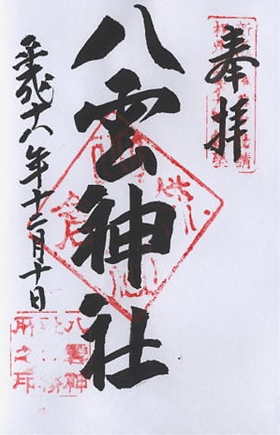 奉拝
八雲神社
平成十八年十二月十日
八雲神
社社務
所之印